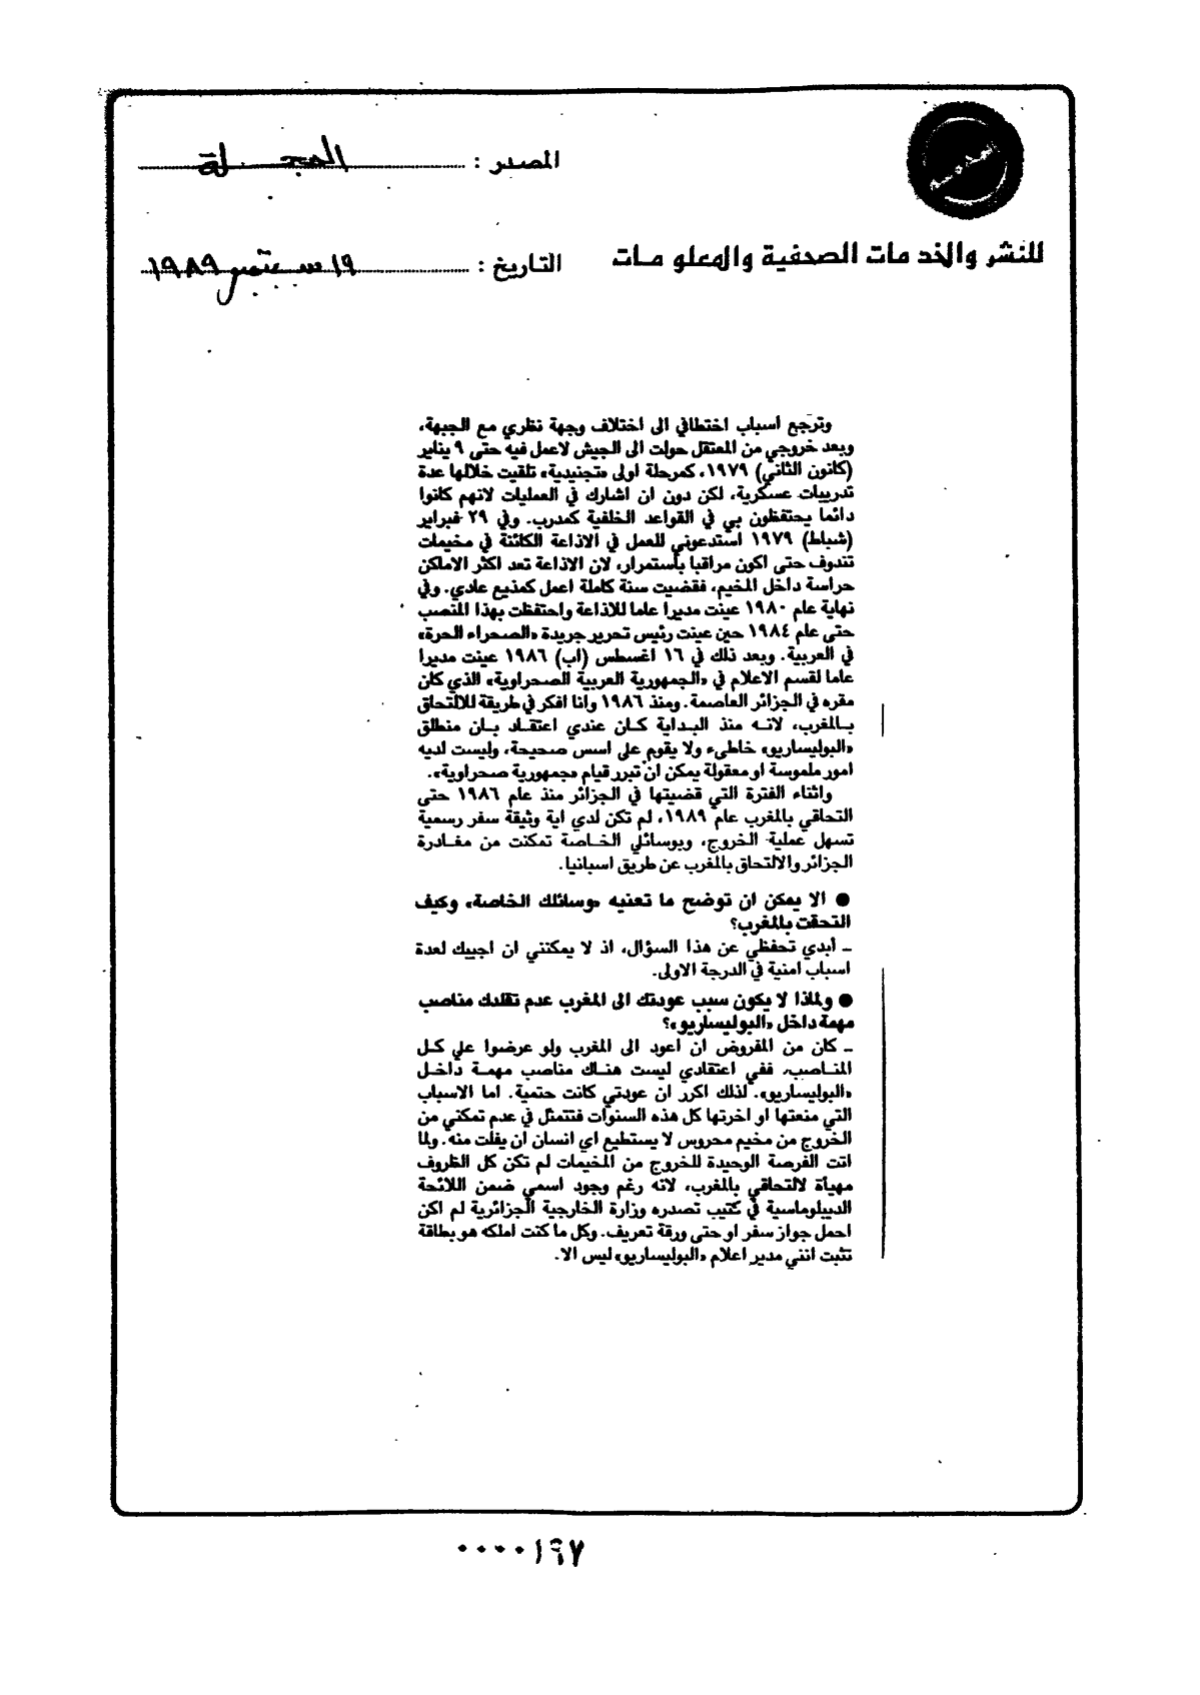 المصدر : المجلة
للنشر والخدمات الصحفية والمعلومات
التاريخ : ١٩ سبتمبر ١٩٨٩
وترجع اسباب اختطافي الى اختلاف وجهة نظري مع الجبهة،
وبعد خروجي من المعتقل حولت الى الجيش لاعمل فيه حتى ٩ يناير
(كانون الثاني) ١٩٧٩، كمرحلة اولى «تجنيدية» تلقيت خلالها عدة
تدريبات عسكرية، لكن دون ان اشارك في العمليات لانهم كانوا
دائما يحتفظون بي في القواعد الخلفية كمدرب. وفي ٢٩ فبراير
(شباط) ١٩٧٩ استدعوني للعمل في الاذاعة الكائنة في مخيمات
تندوف حتى اكون مراقبا بأستمرار، لان الاذاعة تعد اكثر الاماكن
حراسة داخل المخيم، فقضيت سنة كاملة اعمل كمذيع عادي. وفي
نهاية عام ١٩٨٠ عينت مديرا عاما للاذاعة واحتفظت بهذا المنصب
حتى عام ١٩٨٤ حين عينت رئيس تحرير جريدة «الصحراء الحرة»
في العربية. وبعد ذلك في ١٦ اغسطس (اب) ١٩٨٦ عينت مديرا
عاما لقسم الاعلام في «الجمهورية العربية الصحراوية» الذي كان
مقره في الجزائر العاصمة. ومنذ ١٩٨٦ وانا افكر في طريقة للالتحاق
بالمغرب، لانه منذ البداية كان عندي اعتقاد بان منطلق
«البوليساريو» خاطىء ولا يقوم على اسس صحيحة، وليست لديه
امور ملموسة او معقولة يمكن ان تبرر قيام «جمهورية صحراوية».
واثناء الفترة التي قضيتها في الجزائر منذ عام ١٩٨٦ حتى
التحاقي بالمغرب عام ١٩٨٩، لم تكن لدي اية وثيقة سفر رسمية
تسهل عملية الخروج، وبوسائلي الخاصة تمكنت من مغادرة
الجزائر والالتحاق بالمغرب عن طريق اسبانيا.
● الا يمكن ان توضح ما تعنيه «وسائلك الخاصة» وكيف
التحقت بالمغرب؟
ـ أبدي تحفظي عن هذا السؤال، اذ لا يمكنني ان اجيبك لعدة
اسباب امنية في الدرجة الاولى.
● ولماذا لا يكون سبب عودتك الى المغرب عدم تقلدك مناصب
مهمة داخل «البوليساريو»؟
ـ كان من المفروض ان اعود الى المغرب ولو عرضوا علي كل
المناصب، ففي اعتقادي ليست هناك مناصب مهمة داخل
«البوليساريو». لذلك اكرر ان عودتي كانت حتمية. اما الاسباب
التي منعتها او اخرتها كل هذه السنوات فتتمثل في عدم تمكني من
الخروج من مخيم محروس لا يستطيع اي انسان ان يفلت منه. ولما
اتت الفرصة الوحيدة للخروج من المخيمات لم تكن كل الظروف
مهيأة لالتحاقي بالمغرب، لانه رغم وجود اسمي ضمن اللائحة
الديبلوماسية في كتيب تصدره وزارة الخارجية الجزائرية لم اكن
احمل جواز سفر او حتى ورقة تعريف. وكل ما كنت املكه هو بطاقة
تثبت انني مدير اعلام «البوليساريو» ليس الا.
٠٠٠٠١٩٧